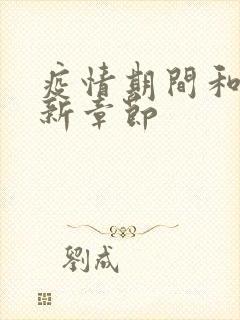 疫情期間和
新章節
劉成